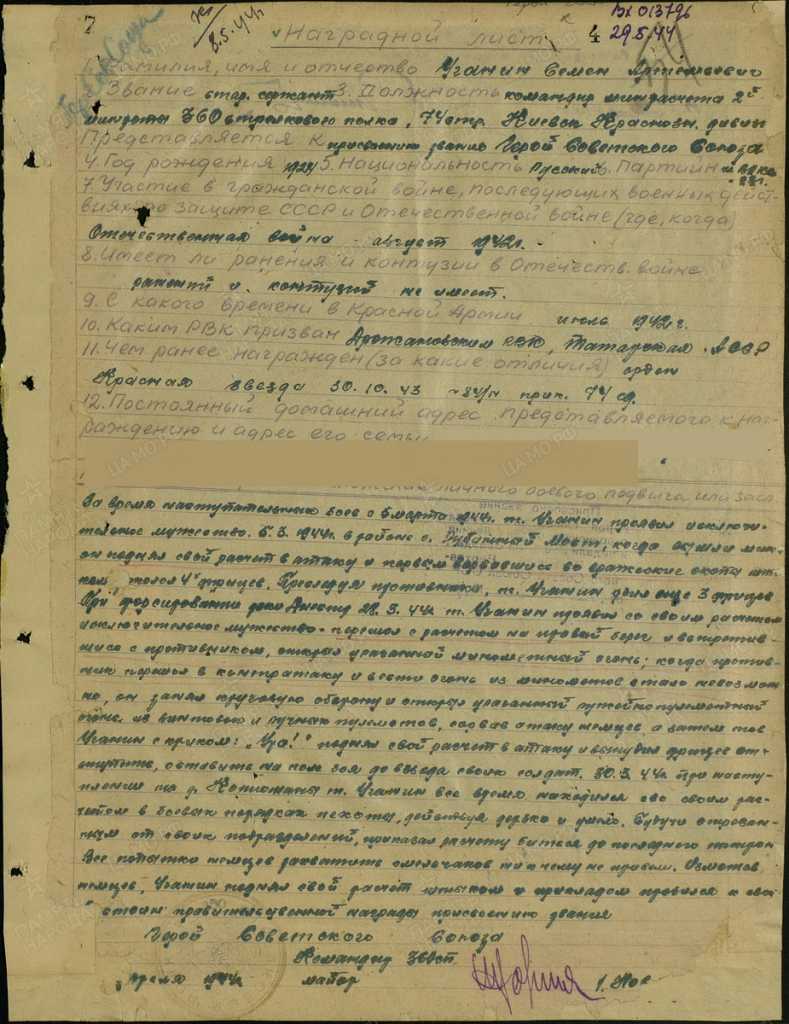 7
8.5.44г
Вх 013796
29.5.44
4
Наградной лист
Фамилия, имя и отчество Уганин Семен Артемьевич
2. Звание стар. сержант 3. Должность командир миндасчета 2й
минроты 360 стрелкового полка, 74 стр. Киевск. Краснозн. дивиз
Представляется к присвоению звание Герой Советского Союза
4. Год рождения 5. Национальность Русский 6. Партийн
7. Участие в гражданской войне, последующих военных дейст-
виях по защите СССР и Отечественной войне (где, когда)
Отечественная война - август 1942г. -
8. Имеет ли ранения и контузии в Отечеств. войне
ранений и контузий не имеет.
9. С какого времени в Красной Армии июль 1942г.
10. Каким РВК призван Дрожановским РВК, Татарская АССР
11. Чем ранее награжден (за какие отличия) орден
Красная звезда 30.10.43 прик. 74 сд.
12. Постоянный домашний адрес представляемого к наг-
раждению и адрес его семьи
личного боевого подвига или засл
За время наступательных боев с 5 марта 1944г. т. Уганин проявил исключи-
тельное мужество. 5.3.1944г. в районе с. Мост, когда
он поднял свой расчет в атаку и первым ворвавшись во вражеские окопы шты-
ком 4 фрицев. Преследуя противника, т. Уганин убил еще 3 фрицев
При форсировании реки Днестр 28.3.44г. т. Уганин проявил со своим расчетом
исключительное мужество. перешел с расчетом на правый берег и встретив-
шись с противником, открыл ураганный минометный огонь; когда против-
ник перешел в контратаку и вести огонь из минометов стало невозмож
но, он занял круговую оборону и открыл ураганный ружейно пулеметный
огонь из винтовок и ручных пулеметов, сорвав атаку немцев, а затем тов
Уганин с криком: „Ура!" поднял свой расчет в атаку и вынудил фрицев от-
ступить, оставить на поле боя до взвода своих солдат. 30.3.44г. при насту-
плении на д. т. Уганин все время находился со своим рас-
четом в боевых порядках пехоты, действуя дерзко и умело. Будучи отрезан-
ным от своих подразделений, приказал расчету биться до последнего патрона
Все попытки немцев захватить смельчаков ни к чему не привели. Измотав
немцев, Уганин поднял свой расчет штыком и прикладом пробился к свои
достоин правительственной награды присвоению звания
Герой Советского Союза
Командир 360сп
апреля 1944г. майор